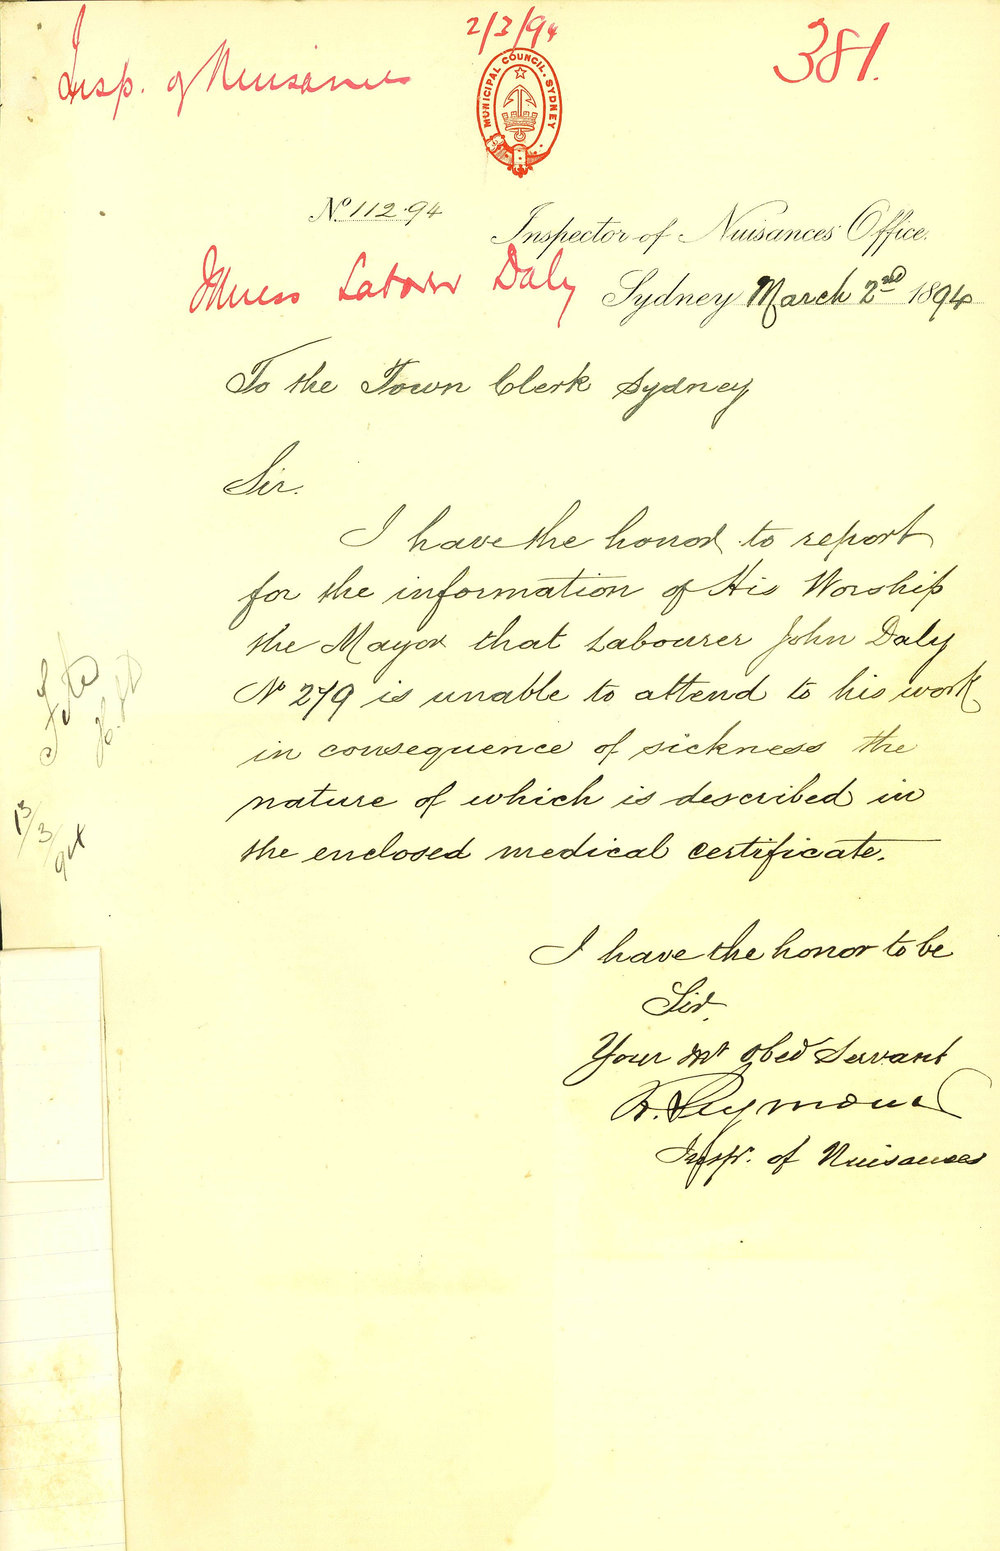 2/3/94
Insp. of Nuisances
381.
MUNICIPAL COUNCIL. SYDNEY
No. 112.94
Inspector of Nuisances' Office.
Illness Laborer Daly
Sydney March 2nd 1894
To the Town Clerk Sydney
Sir.
I have the honor to report
for the information of His Worship
the Mayor that Labourer John Daly
No 279 is unable to attend to his work
in consequence of sickness the
nature of which is described in
the enclosed medical certificate.
13/3/94
I have the honor to be
Sir,
Your Mt Obed Servant
Seymour
Inspr. of Nuisances